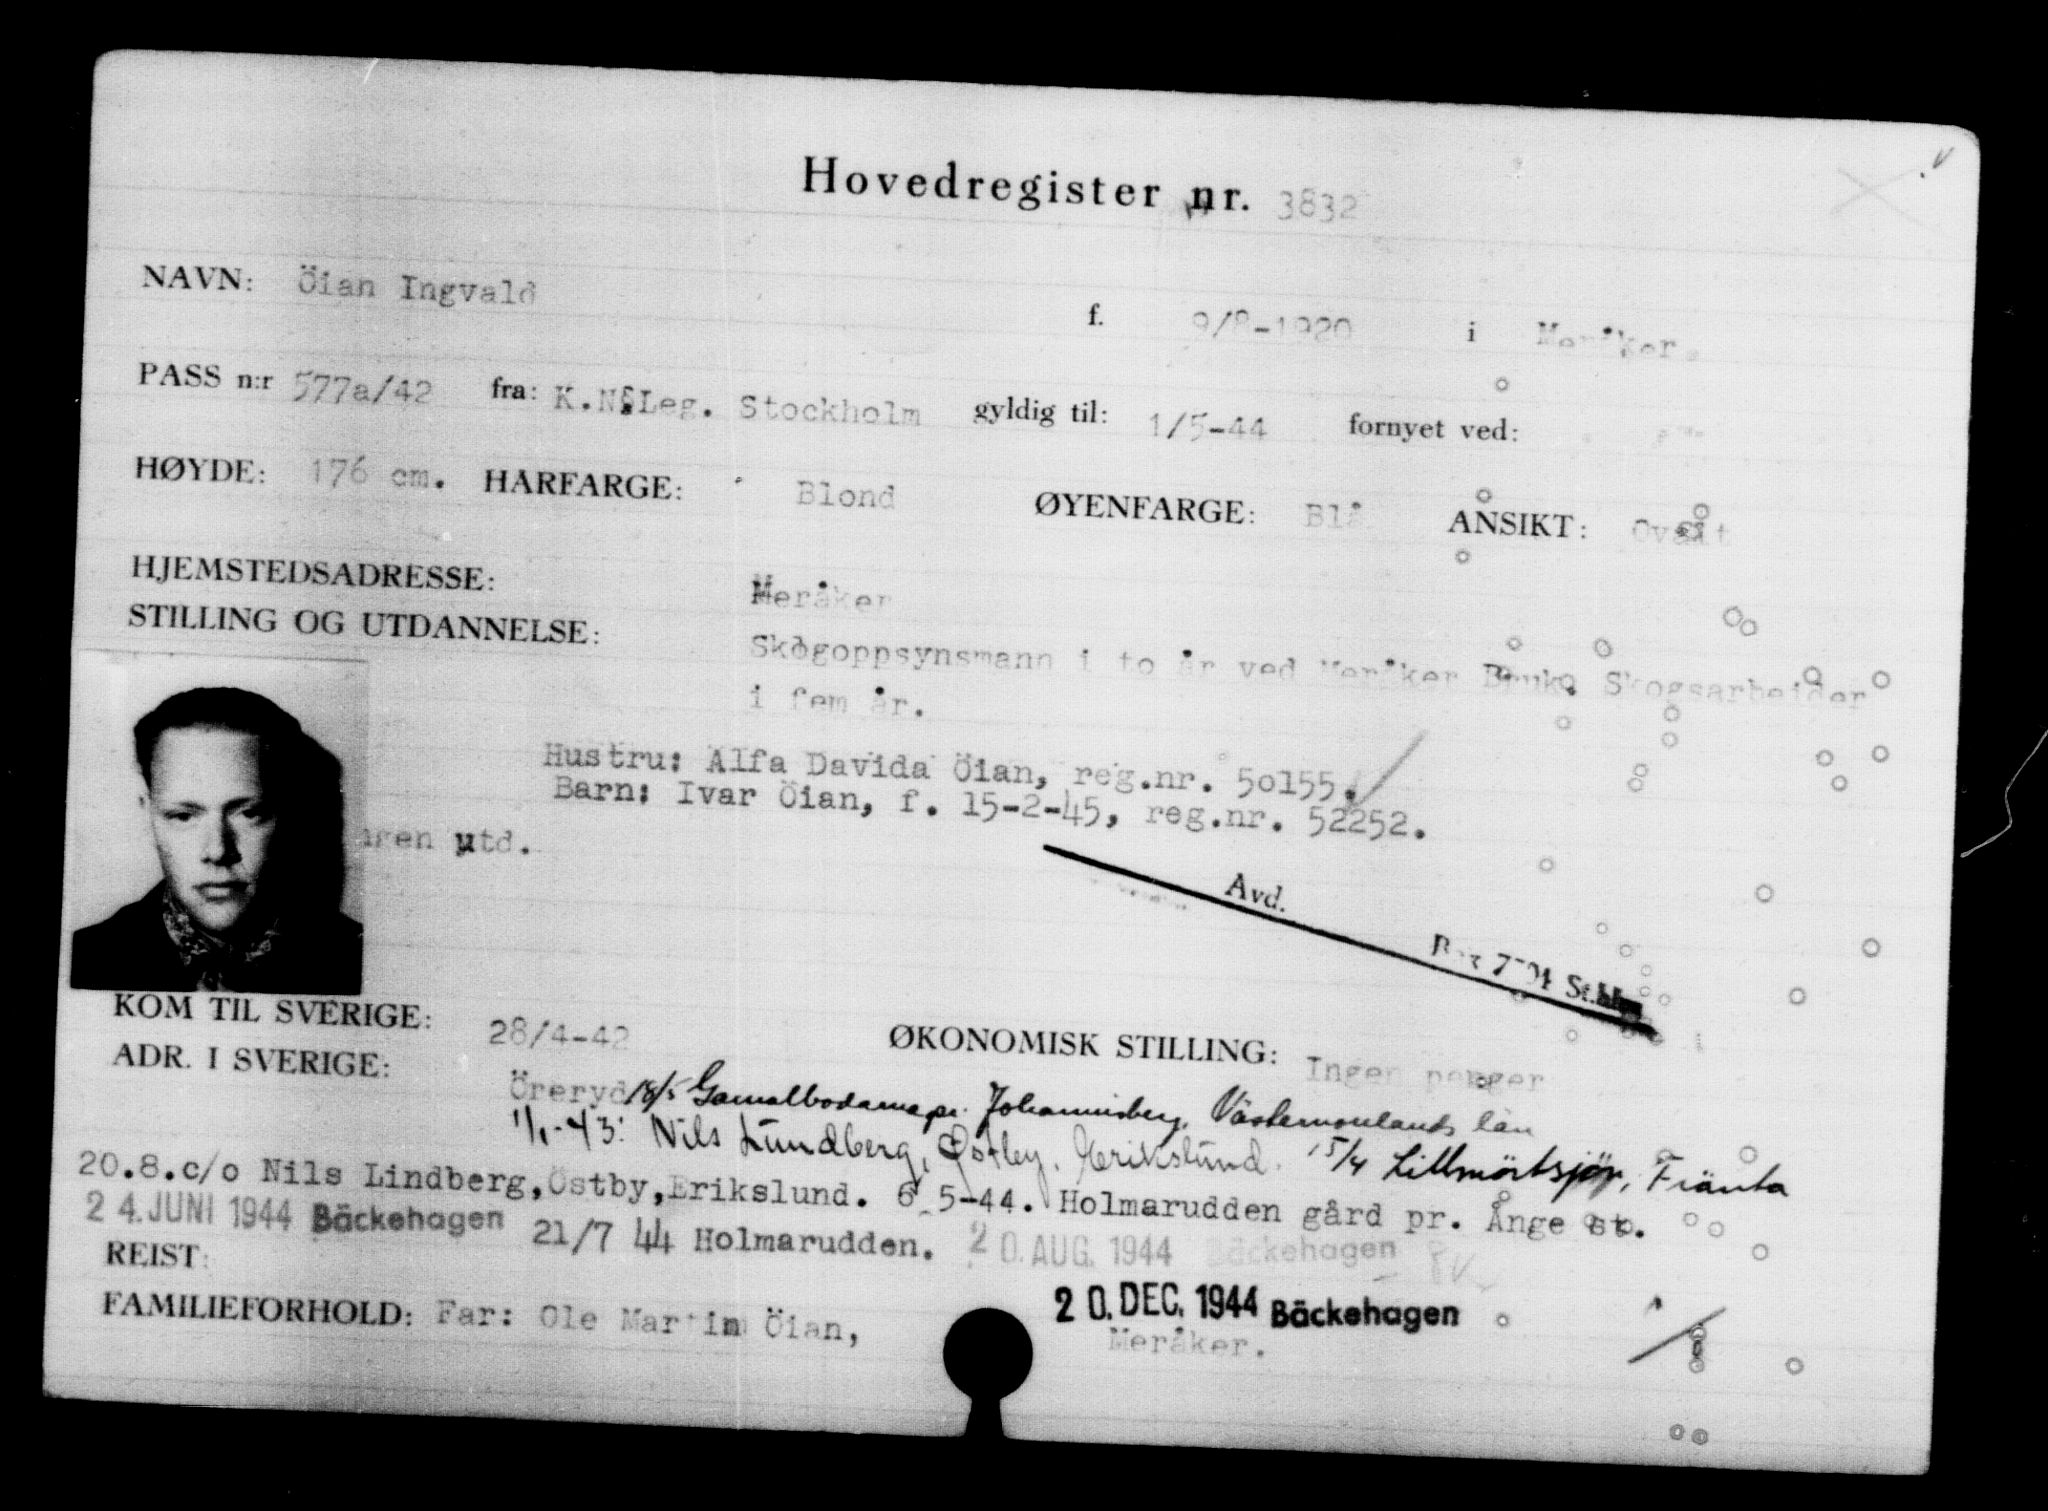 Hovedregister nr. 3832
NAVN: Öian Ingvald f. 9/8-1920 i Meråker.
PASS n:r 577a/42 fra: K.N.Leg. Stockholm gyldig til: 1/5-44 fornyet ved:
HØYDE: 176 cm. HARFARGE: Blond ØYENFARGE: Blå ANSIKT: Ovalt
HJEMSTEDSADRESSE: Meråker
STILLING OG UTDANNELSE: Skogoppsynsmann i to år ved Meråker Bruk. Skogsarbeider
i fem år.
Hustru: Alfa Davida Öian, reg.nr. 50155.
Barn: Ivar Öian, f. 15-2-45, reg.nr. 52252.
utd.
Avd.
Box 7704 St.hlm
KOM TIL SVERIGE: 28/4-42 ØKONOMISK STILLING: Ingen penger
ADR. I SVERIGE: Öreryd 18/5 Gamalbodarna pr. Johannisberg, Västernorrlands län
1/1-43: Nils Lundberg, Östby, Erikslund. 15/4 Lillmörtsjön, Fränta
20.8.c/o Nils Lindberg,Östby,Erikslund. 6.5-44. Holmarudden gård pr. Ånge st.
24. JUNI 1944 Bäckehagen 21/7 44 Holmarudden. 20. AUG. 1944 Bäckehagen
REIST:
20. DEC. 1944 Bäckehagen
FAMILIEFORHOLD: Far: Ole Martin Öian, Meråker.